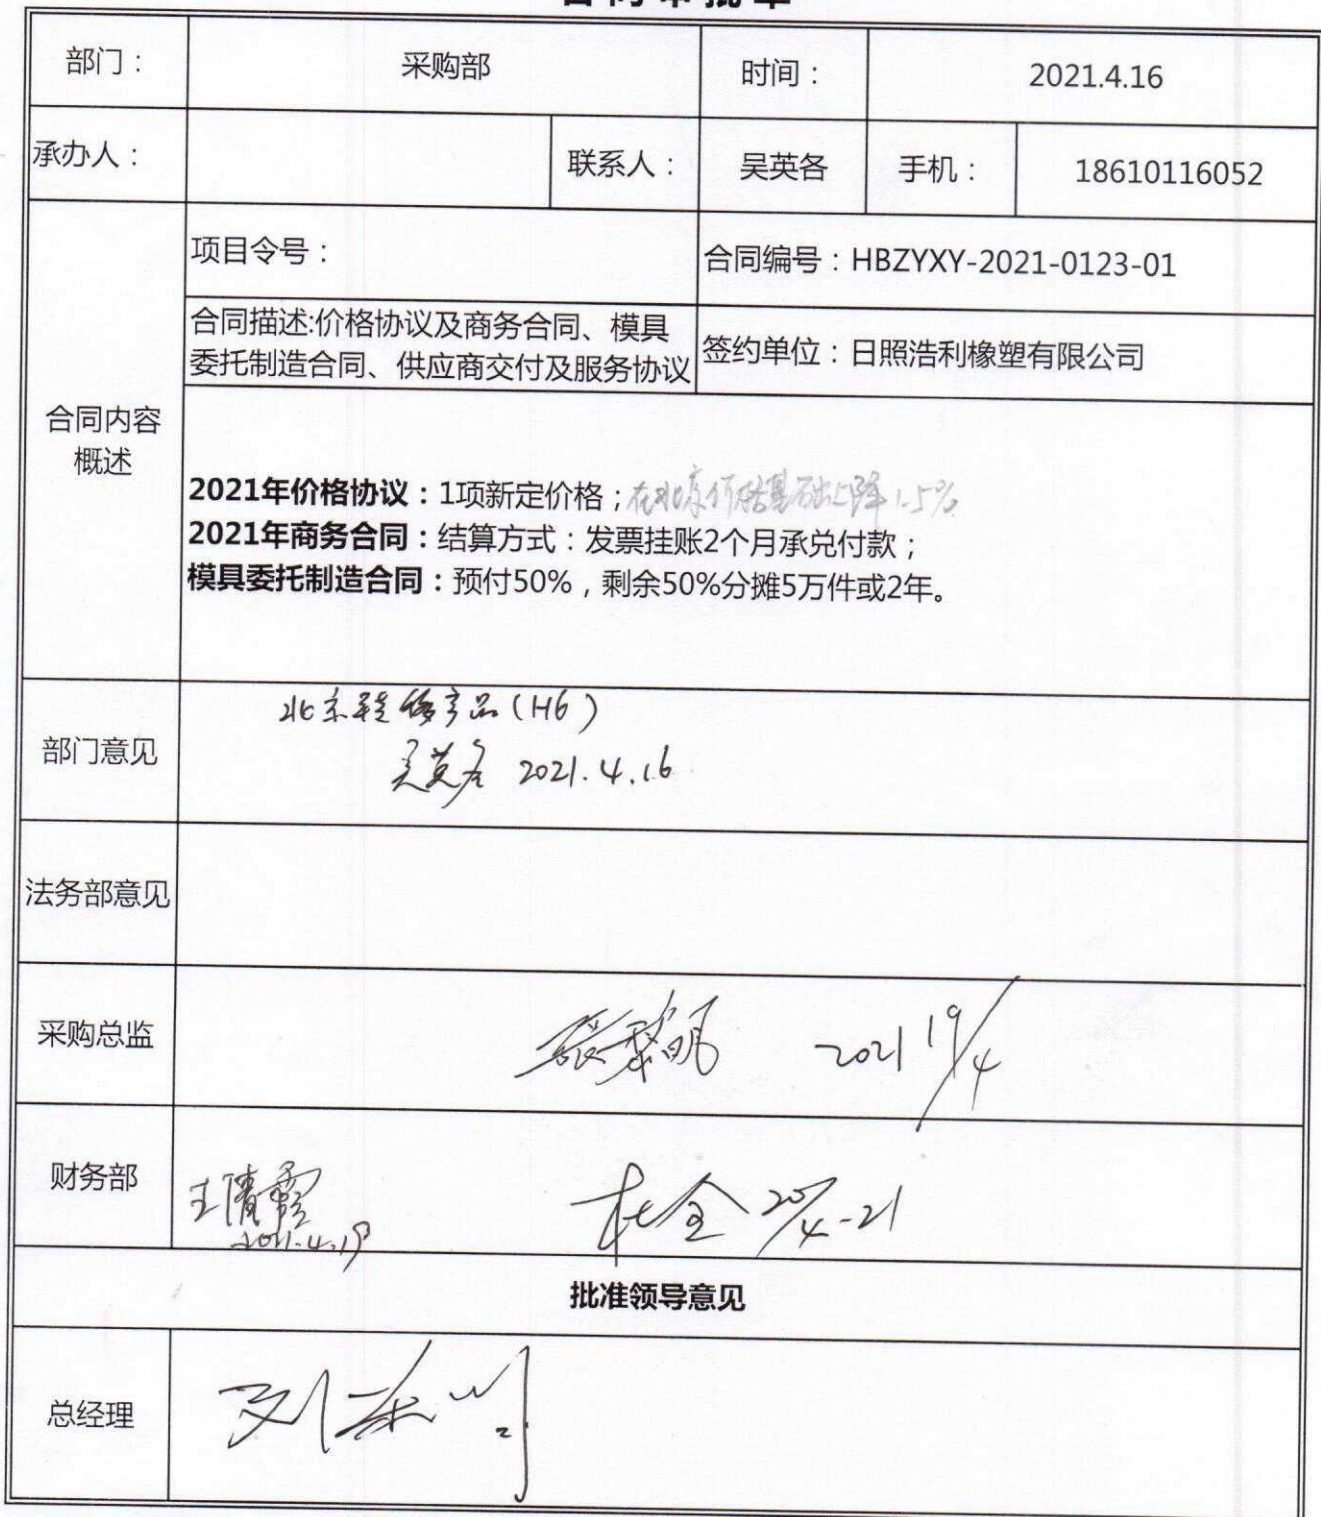 合同审批单
部门： 采购部 时间： 2021.4.16
承办人： 联系人： 吴英各 手机： 18610116052
项目令号： 合同编号：HBZYXY-2021-0123-01
合同描述:价格协议及商务合同、模具
委托制造合同、供应商交付及服务协议
签约单位：日照浩利橡塑有限公司
合同内容
概述
2021年价格协议：1项新定价格；在北京价格基础上降1.5%
2021年商务合同：结算方式：发票挂账2个月承兑付款；
模具委托制造合同：预付50%，剩余50%分摊5万件或2年。
部门意见
北京 产品(H6)
吴英各 2021.4.16
法务部意见
采购总监
2021 19/4
财务部
2021.4.19
杜全 20/4-21
批准领导意见
总经理